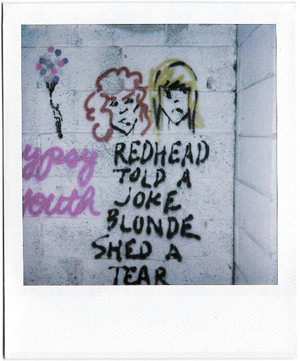 ypsy
outh
REDHEAD
TOLD A
JOKE
BLONDE
SHED A
TEAR